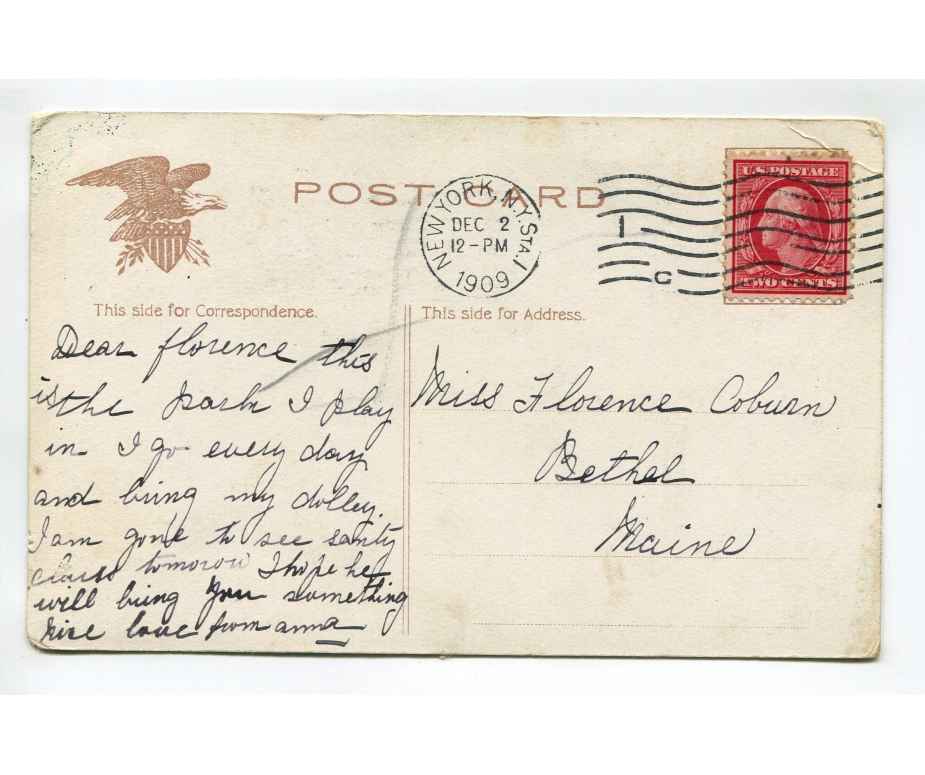 POST CARD
NEW YORK, N.Y. STA. I
DEC 2
12-PM
1909
1
C
U.S. POSTAGE
TWO CENTS
This side for Correspondence.
This side for Address.
Dear florence this
is the park I play
in I go every day
and bring my dolley.
I am gone to see santy
claus tomorow I hope he
will bring you something
nice love from anna
Miss Florence Coburn
Bethel
Maine